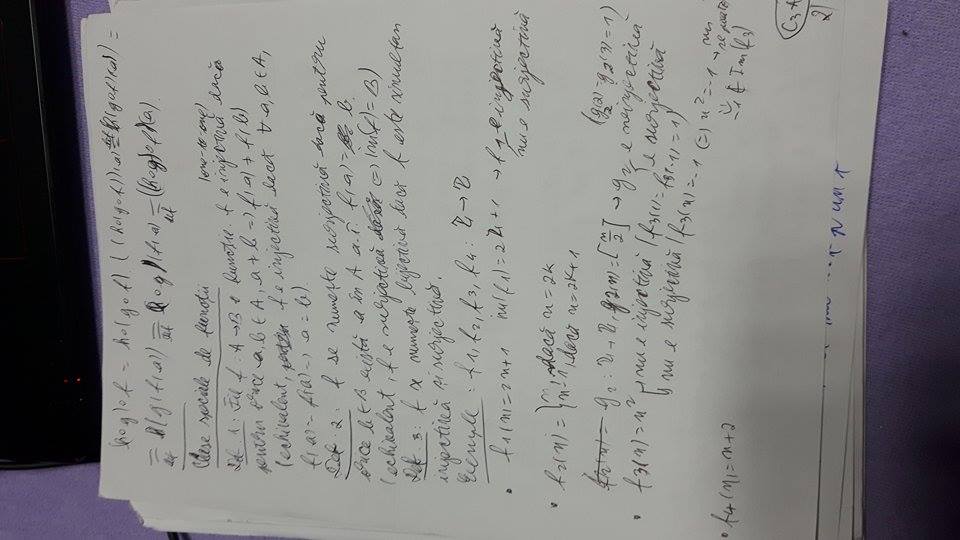 (h∘g)∘f = h∘(g∘f). (h∘(g∘f))(a) = h((g∘f)(a)) =
= h(g(f(a))) = (h∘g)(f(a)) = ((h∘g)∘f)(a).
Clase speciale de funcții
Def 1: Fie f: A→B o funcție. f e injectivă dacă (one-to-one)
pentru orice a, b ∈ A, a ≠ b => f(a) ≠ f(b)
(echivalent, f e injectivă dacă ∀ a, b ∈ A,
f(a) = f(b) => a = b)
Def 2: f se numește surjectivă dacă pentru
orice b ∈ B există a în A a.î. f(a) = b.
(echivalent, f e surjectivă (=) Im(f) = B)
Def 3: f se numește bijectivă dacă f este simultan
injectivă și surjectivă.
Exemple: f1, f2, f3, f4: Z → Z
f1(n) = 2n+1 Im(f1) = 2Z+1 → f1 e injectivă
nu e surjectivă
f2(n) = { n, dacă n = 2k
n-1, dacă n = 2k+1
g2: Z→Z, g2(n) = [n/2] → g2 e surjectivă (g2(2) = g2(3) = 1)
f3(n) = n² { nu e injectivă (f3(1) = f3(-1) = 1)
nu e surjectivă (f3(n) = -1 (=) n² = -1 → nu se poate
-1 ∉ Im(f3)
f4(n) = n+2
2)